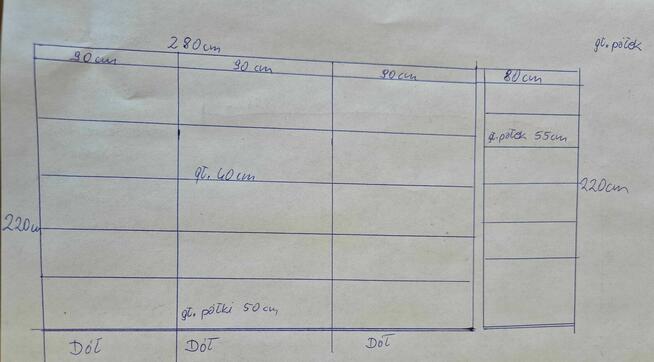 gł. półek
280cm
90cm
90cm
90cm
80cm
gł. półek 55cm
gł. 40cm
220cm
220cm
gł. półki 50cm
Dół
Dół
Dół